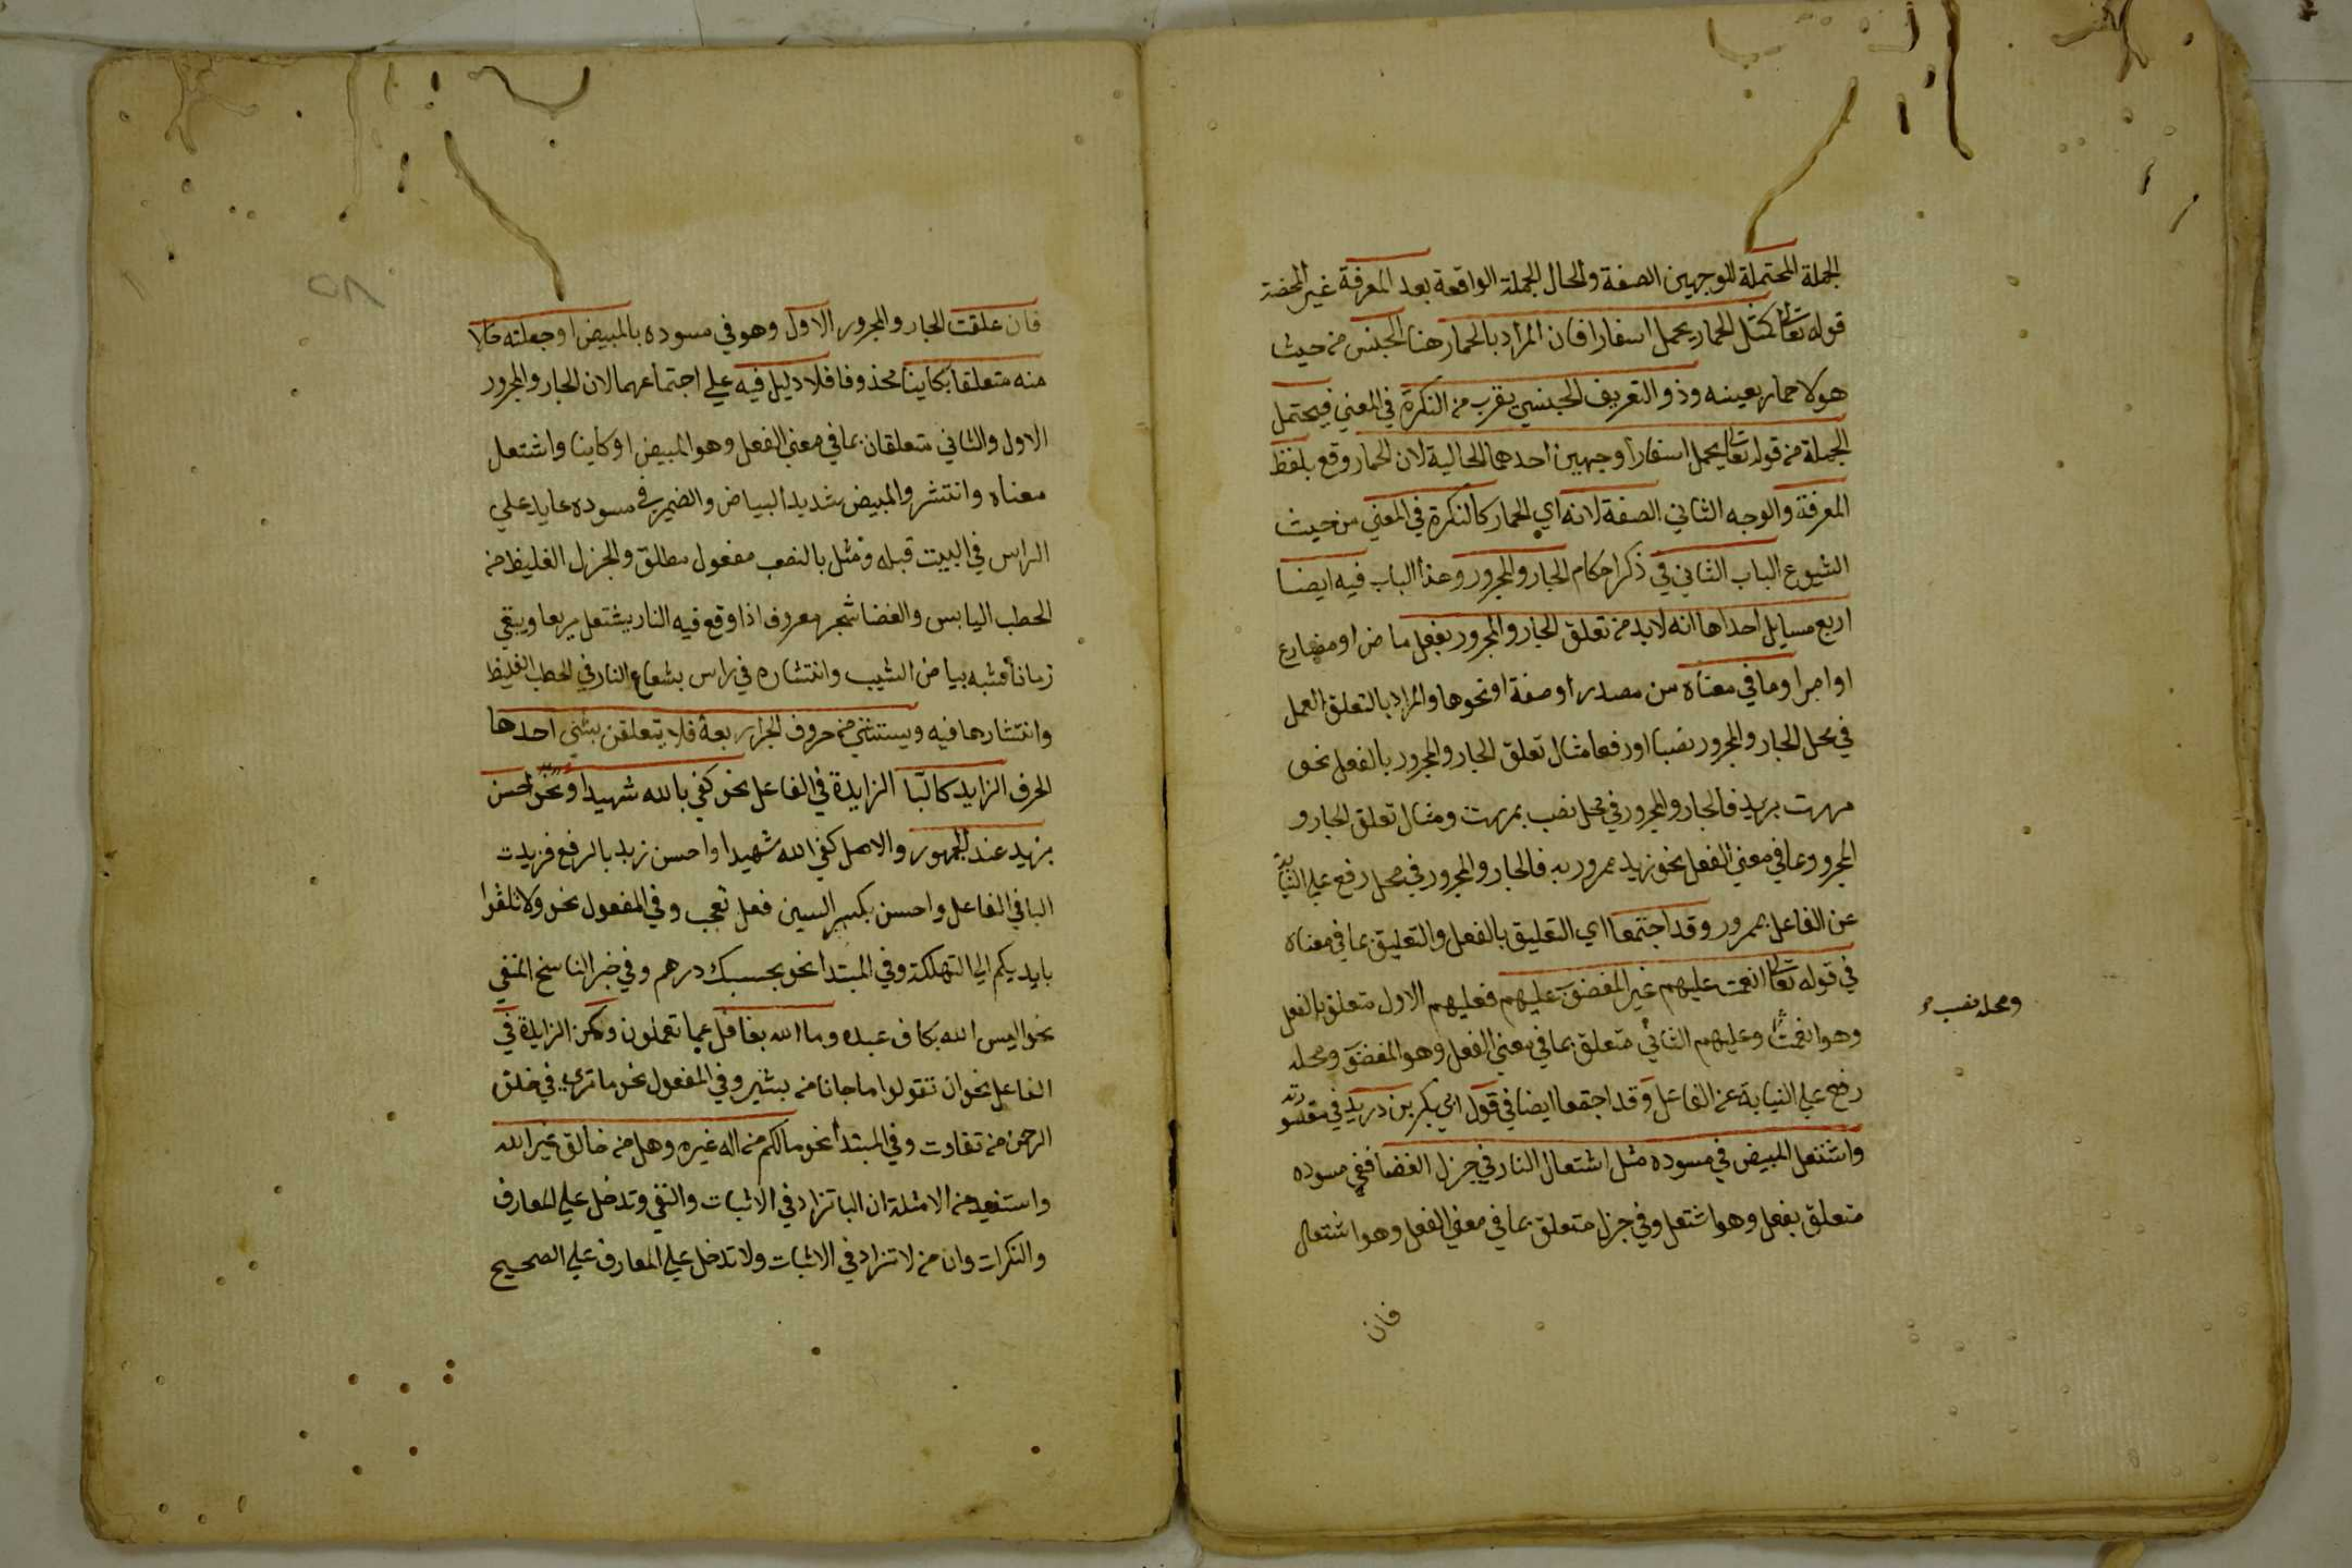 الجملة المحتملة للوجهين الصفة والحال الجملة الواقعة بعد المعرفة غير المحضة
قوله تعالى كمثل الحمار يحمل اسفارا فان المراد بالحمار هنا الجنس من حيث
هو لا حمار بعينه وذو التعريف الجنسي يقرب من النكرة في المعني فيحتمل
الجملة من قوله تعالى يحمل اسفارا وجهين احدهما الحالية لان الحمار وقع بلفظ
المعرفة والوجه الثاني الصفة لانه اي الحمار كالنكرة في المعني من حيث
الشيوع الباب الثاني في ذكر احكام الجار والمجرور وهذا الباب فيه ايضا
اربع مسايل احداها انه لابد من تعلق الجار والمجرور بفعل ماض او مضارع
او امر او ما في معناه من مصدر او صفة او نحوها والمراد بالتعلق العمل
في محل الجار والمجرور نصبا او رفعا مثال تعلق الجار والمجرور بالفعل نحو
مررت بزيد فالجار والمجرور في محل نصب بمررت ومثال تعلق الجار و
المجرور وما في معني الفعل نحو زيد ممرور به فالجار والمجرور في محل رفع علي النيابة
عن الفاعل بممرور وقد اجتمعا اي التعليق بالفعل والتعليق بما في معناه
في قوله تعالى انعمت عليهم غير المغضوب عليهم فعليهم الاول متعلق بالفعل
وهو انعمت وعليهم الثاني متعلق بما في معني الفعل وهو المغضوب ومحله
ومحله نصب
رفع علي النيابة عن الفاعل وقد اجتمعا ايضا في قول ابي بكر بن دريد في مقصورته
واشتعل المبيض في مسوده مثل اشتعال النار في جزل الغضا ففي مسوده
متعلق بفعل وهو اشتعل وفي جزل متعلق بما في معني الفعل وهو اشتعال
فان
٥٨
فان علقت الجار والمجرور الاول وهو في مسوده بالمبيض او جعلته حالا
منه متعلقا بكاينا محذوفا فلا دليل فيه علي اجتماعهما لان الجار والمجرور
الاول والثاني متعلقان بما في معني الفعل وهو المبيض او كاينا واشتعل
معناه وانتشر والمبيض شديد البياض والضمير في مسوده عايد علي
الراس في البيت قبله ومثل بالنصب مفعول مطلق والجزل الغليظ من
الحطب اليابس والغضا شجر معروف اذا وقع فيه النار يشتعل سريعا ويبقي
زمانا فشبه بياض الشيب وانتشاره في راس بشعاع النار في الحطب الغليظ
وانتشارها فيه ويستثني من حروف الجر اربعة فلا يتعلقن بشي احدها
الحرف الزايد كالبا الزايدة في الفاعل نحو كفي بالله شهيدا ونحو احسن
بزيد عند الجمهور والاصل كفي الله شهيدا واحسن زيد بالرفع فزيدت
البا في الفاعل واحسن بكسر السين فعل تعجب وفي المفعول نحو ولا تلقوا
بايديكم الي التهلكة وفي المبتدا نحو بحسبك درهم وفي خبر الناسخ المنفي
نحو اليس الله بكاف عبده وما الله بغافل عما تعملون وكمن الزايدة في
الفاعل نحو ان تقولوا ما جانا من بشير وفي المفعول نحو ما تري في خلق
الرحمن من تفاوت وفي المبتدا نحو مالكم من اله غيره وهل من خالق غير الله
واستفيد من الامثلة ان البا تزاد في الاثبات والنفي وتدخل علي المعارف
والنكرات وان من لا تزاد في الاثبات ولا تدخل علي المعارف علي الصحيح